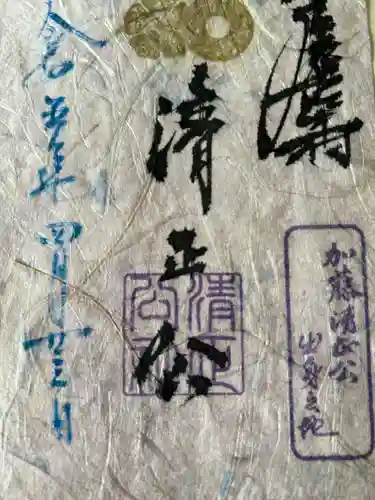 清正公
加藤清正公
出身之地
清正公
令和五年四月廿三日